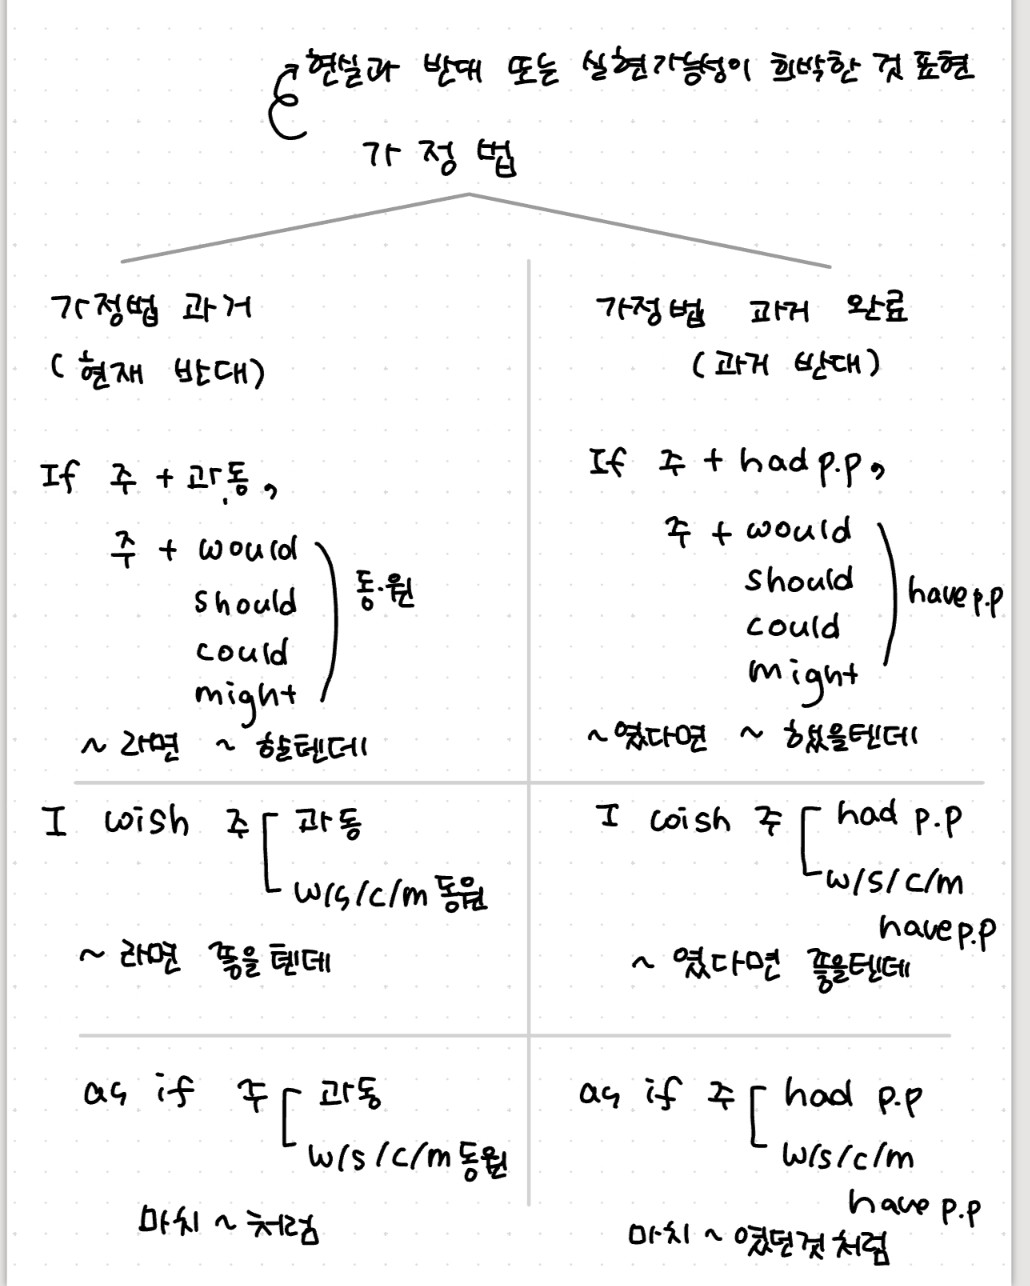 현실과 반대 또는 실현가능성이 희박한 것 표현
가정법
가정법 과거
(현재 반대)
If 주 + 과.동,
주 + would
should
could
might
동.원
~ 라면 ~ 할텐데
가정법 과거 완료
(과거 반대)
If 주 + had p.p,
주 + would
should
could
might
have p.p
~였다면 ~ 했을텐데
I wish 주 과동
w/s/c/m 동원
~ 라면 좋을텐데
I wish 주 had p.p
w/s/c/m
have p.p
~ 였다면 좋을텐데
as if 주 과동
w/s/c/m 동원
마치 ~ 처럼
as if 주 had p.p
w/s/c/m
have p.p
마치 ~ 였던것처럼